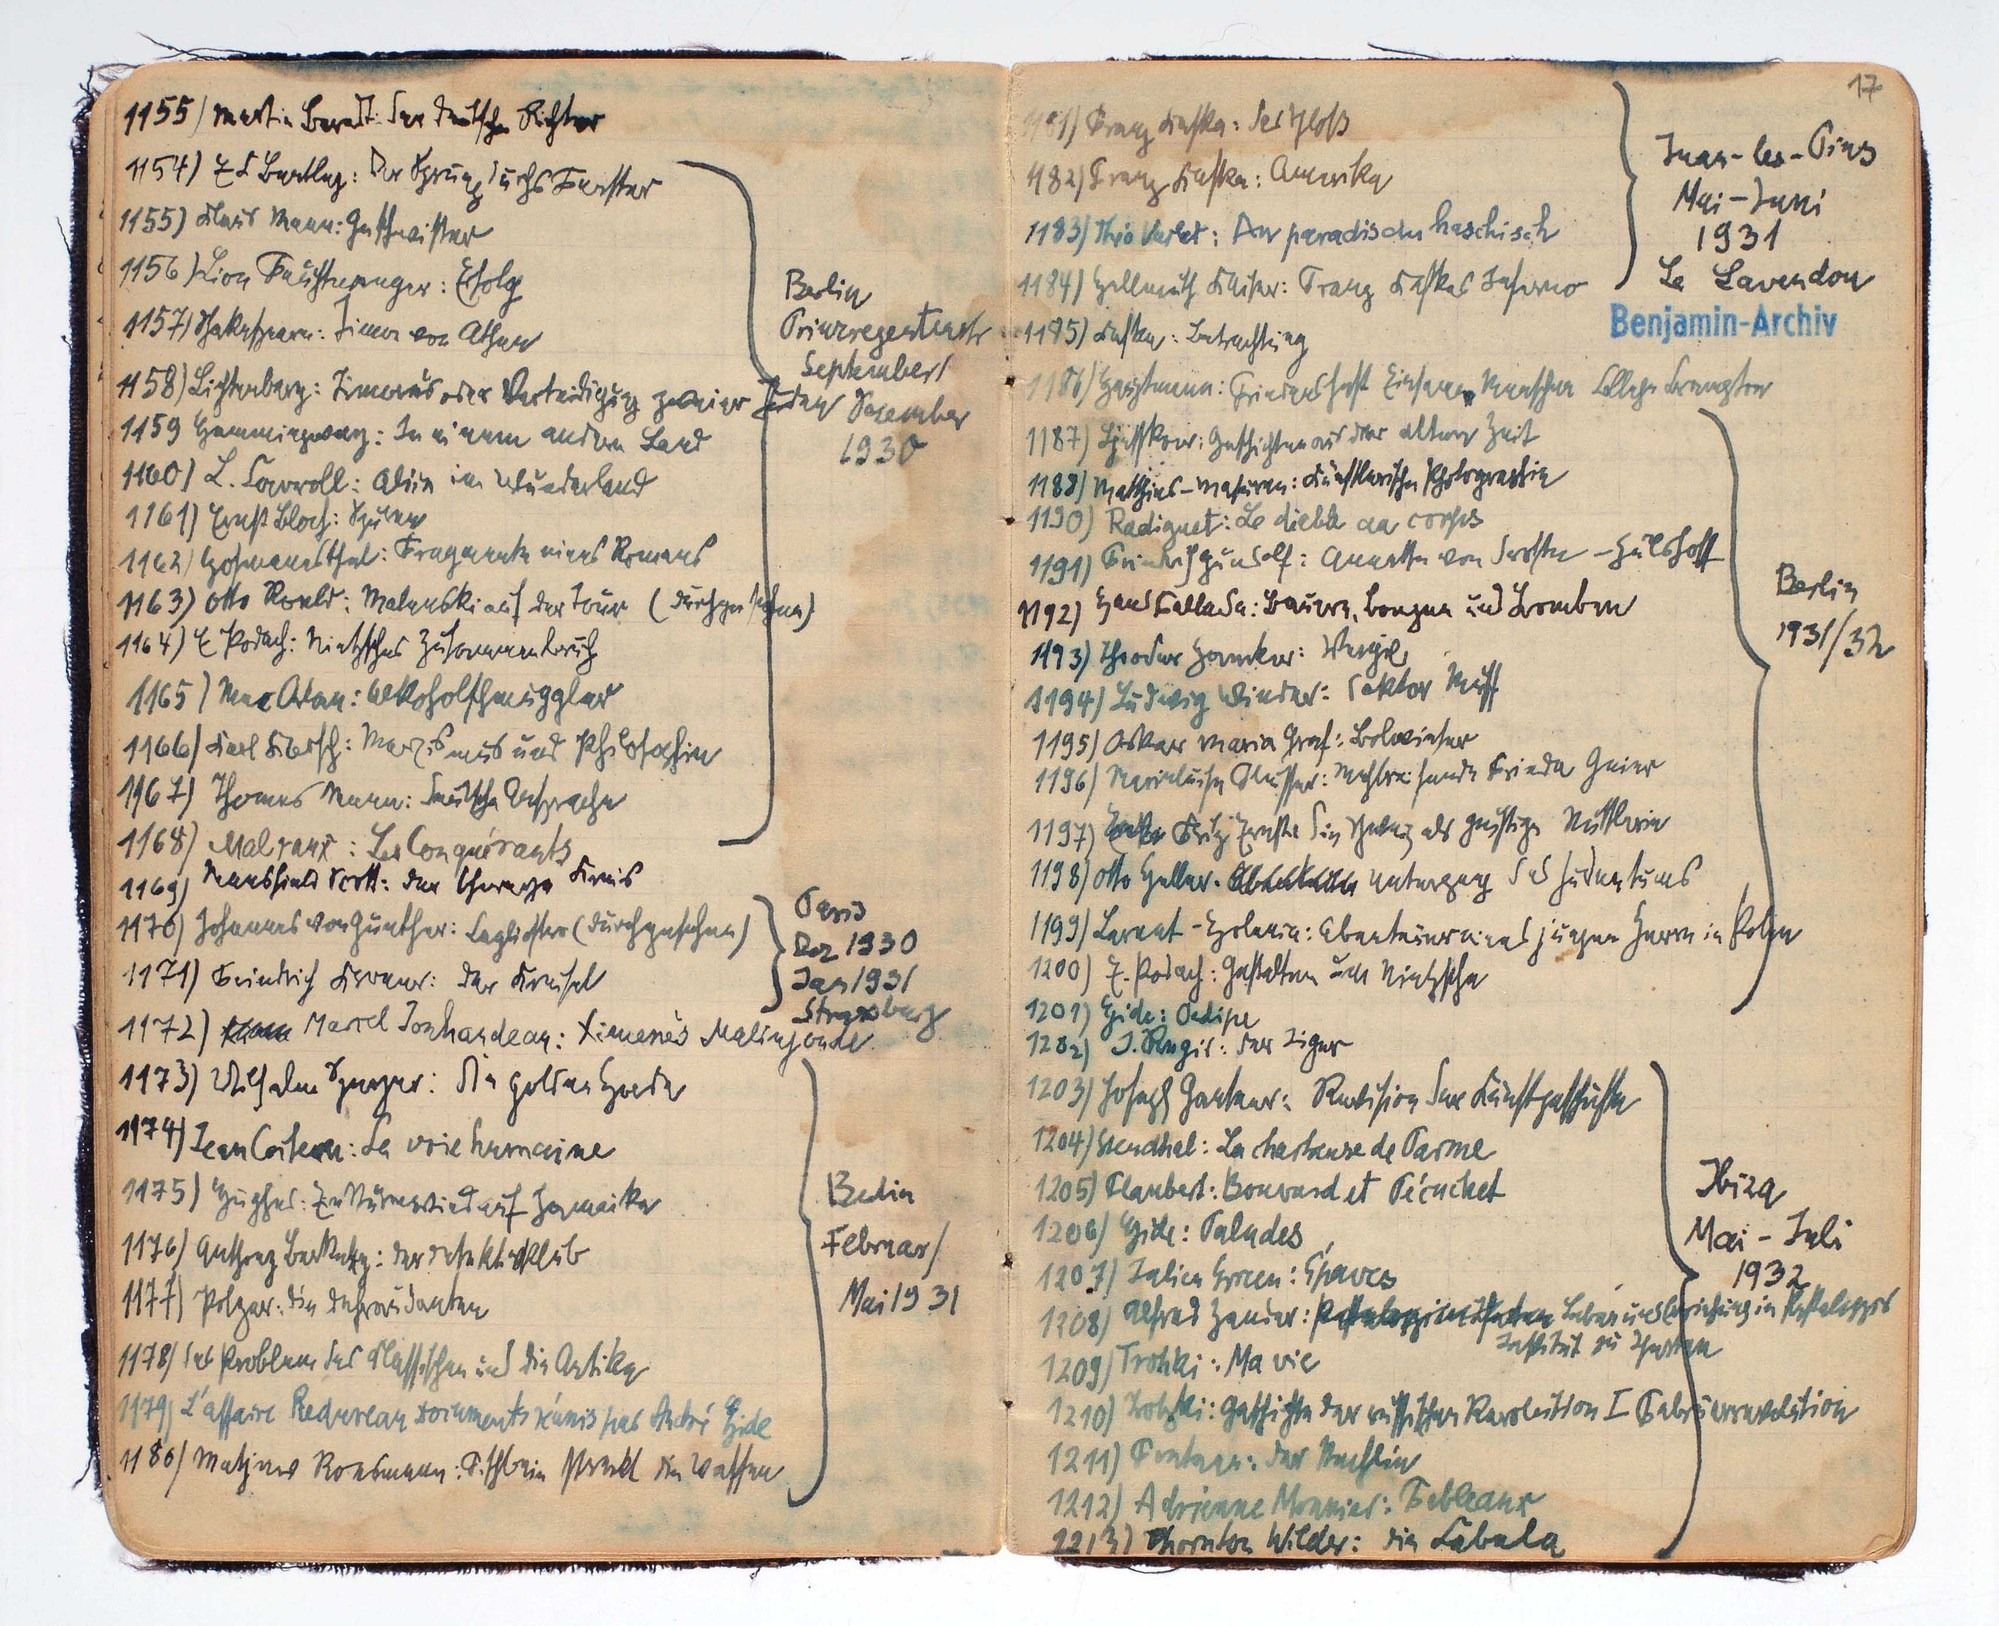 1155) Martin Beradt: Der deutsche Richter
1154) Der Sprung durchs Fenster
1155) Klaus Mann: Geschwister
1156) Lion Feuchtwanger: Erfolg
1157) Shakespeare: Timon von Athen
1158) Lichtenberg: Timorus oder Verteidigung zweier Juden
1159 Hemmingway: In einem andern Land
1160) L. Carroll: Alice im Wunderland
1161) Ernst Bloch: Spuren
1162) Hofmannsthal: Fragmente eines Romans
1163) Otto Roeld: Malenski auf der Tour (durchgesehen)
1164) E Podach: Nietzsches Zusammenbruch
1165) Alkoholschmuggler
1166) Karl Korsch: Marxismus und Philosophie
1167) Thomas Mann: Deutsche Ansprache
1168) Malraux: Les Conquérants
1169) Mansfield Scott: Der schwarze Kreis
1170) Johannes von Gunther: Cagliostro (durchgesehen)
1171) Friedrich der Kreisel
1172) Marcel Jouhandeau: Ximenès Malinjoude
1173) Wilhelm Speyer: Die goldne Horde
1174) Jean Cocteau: La voix humaine
1175) Hughes: Ein Sturmwind auf Jamaika
1176) Anthony Berkeley: Der Detektivklub
1177) Polgar: Die Defraudanten
1178) Das Problem des Klassischen und die Antike
1179) L'affaire Redureau documents réunis par André Gide
1180) Mathias Roesmann: Fischbein streckt die Waffen
Berlin
Prinzregentenstr
September/
Dezember
1930
Paris
Dez 1930
Jan 1931
Strassburg
Berlin
Februar/
Mai 1931
17
1181) Franz Kafka: Das Schloß
1182) Franz Kafka: Amerika
1183) Théo Varlet: Au paradis du haschisch
1184) Hellmuth Kaiser: Franz Kafkas Inferno
1185) Kafka: Betrachtung
1186) Hauptmann: Friedensfest Einsame Menschen College Crampton
1187) Geschichten aus der alten Zeit
1188) Matthies-Masuren: Künstlerische Photographie
1190) Radiguet: Le diable au corps
1191) Friedrich Gundolf: Annette von Droste-Hülshoff
1192) Hans Fallada: Bauern, Bonzen und Bomben
1193) Theodor Haecker: Vergil
1194) Ludwig Winder: Doktor Muff
1195) Oskar Maria Graf: Bolwieser
1196) Marieluise Fleisser: Mehlreisende Frieda Geier
1197) Fritz Ernst: Die Schweiz als geistige Mittlerin
1198) Otto Heller: Untergang des Judentums
1199) Lernet-Holenia: Abenteuer eines jungen Herrn in Polen
1200) E. Podach: Gestalten um Nietzsche
1201) Gide: Oedipe
1202) Der Tiger
1203) Joseph Gantner: Revision der Kunstgeschichte
1204) Stendhal: La chartreuse de Parme
1205) Flaubert: Bouvard et Pécuchet
1206) Gide: Paludes
1207) Julien Green: Épaves
1208) Alfred Zander: Leben und Erziehung in Pestalozzis
Institut zu Iferten
1209) Trotzki: Ma vie
1210) Trotzki: Geschichte der russischen Revolution I Februarrevolution
1211) Fontane: Der Stechlin
1212) Adrienne Monnier: Fableaux
1213) Thornton Wilder: Die Cabala
Juan-les-Pins
Mai-Juni
1931
Le Lavendou
Benjamin-Archiv
Berlin
1931/32
Ibiza
Mai-Juli
1932